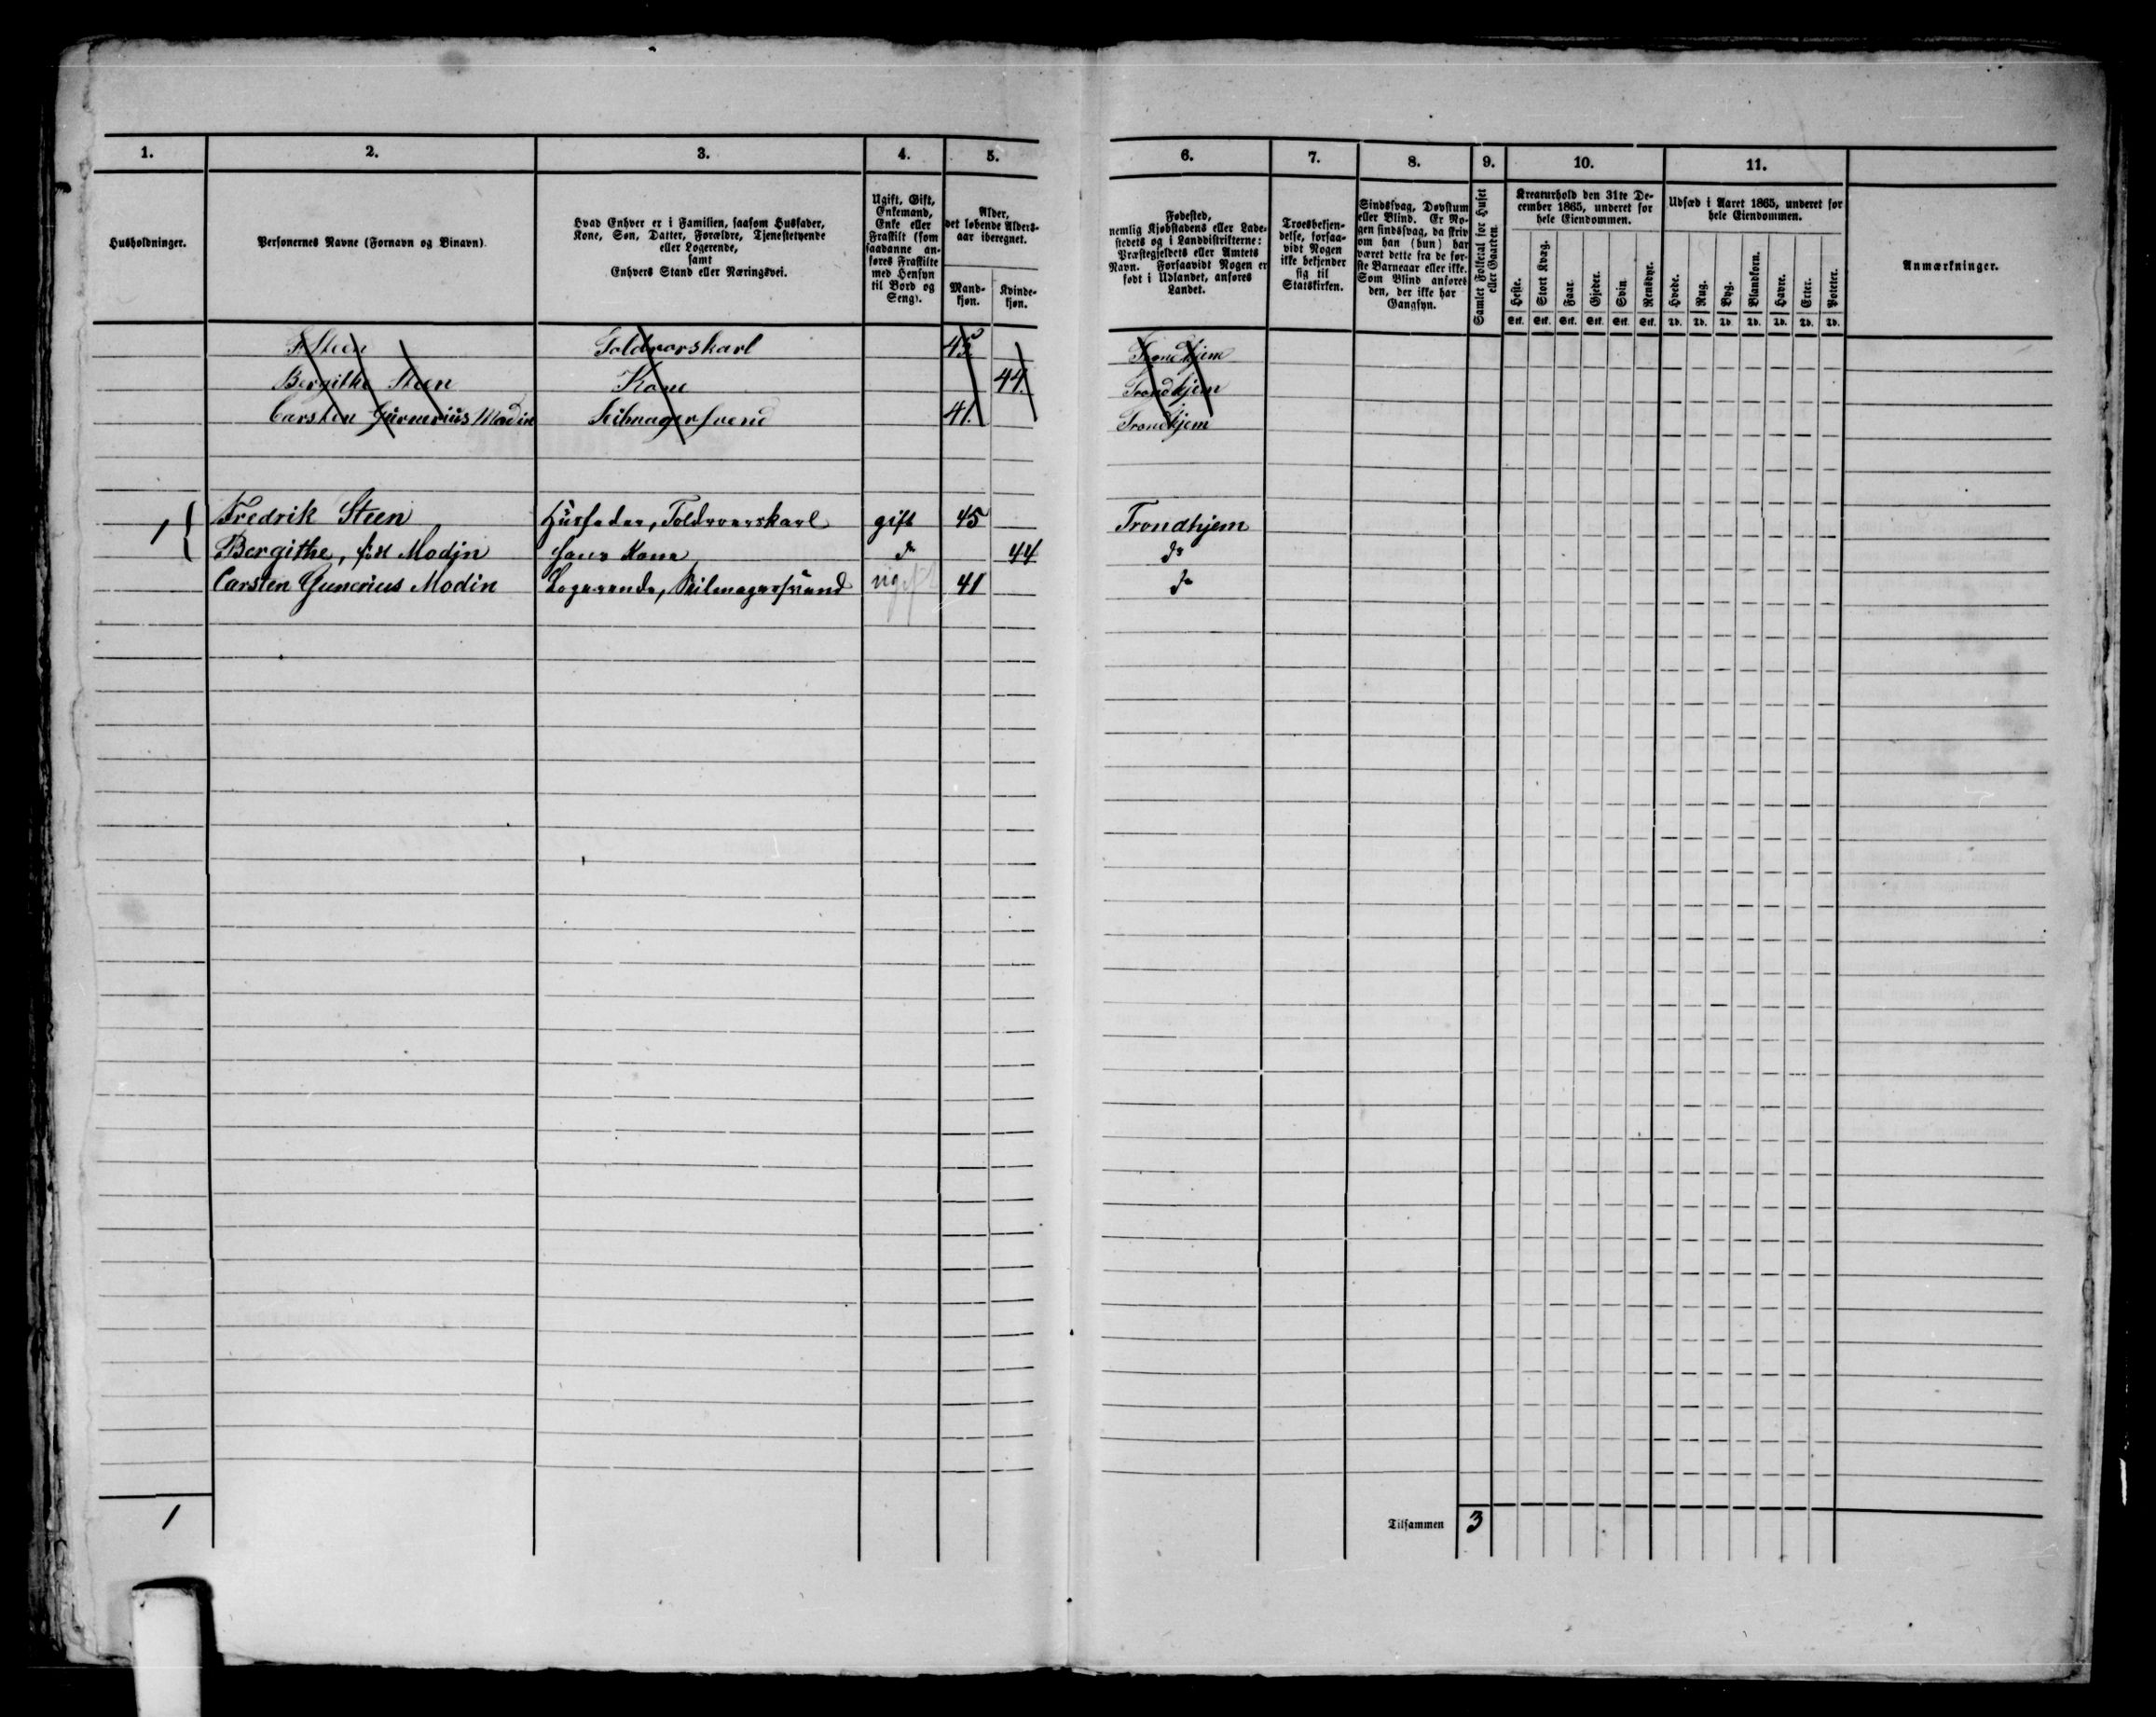 1. 2. 3. 4. 5. 6. 7. 8. 9. 10. 11.
Husholdninger.
Personernes Navne (Fornavn og Binavn).
Hvad Enhver er i Familien, saasom Husfader,
Kone, Søn, Datter, Forældre, Tjenestetyende
eller Logerende,
samt
Enhvers Stand eller Næringsvei.
Ugift, Gift,
Enkemand,
Enke eller
Fraskilt (som
saadanne an-
føres Fraskilte
med Hensyn
til Bord og
Seng).
Alder,
det løbende Alders-
aar iberegnet.
Mand-
kjøn.
Kvinde-
kjøn.
Fødested,
nemlig Kjøbstadens eller Lade-
stedets og i Landdistrikterne:
Præstegjeldets eller Amtets
Navn. Forsaavidt Nogen er
født i Udlandet, anføres
Landet.
Troesbekjen-
delse, forsaa-
vidt Nogen
ikke bekjender
sig til
Statskirken.
Sindssvag, Døvstum
eller Blind. Er No-
gen sindssvag, da skriv
om han (hun) har
været dette fra de før-
ste Barneaar eller ikke.
Som Blind anføres
den, der ikke har
Gangsyn.
Samlet Folketal for Huset
eller Gaarden.
Kreaturhold den 31te De-
cember 1865, underet for
hele Eiendommen.
Heste. Stort Kvæg. Faar. Gjeder. Svin. Rensdyr.
Stk. Stk. Stk. Stk. Stk. Stk.
Udsæd i Aaret 1865, underet for
hele Eiendommen.
Hvede. Rug. Byg. Blandkorn. Havre. Erter. Poteter.
Td. Td. Td. Td. Td. Td. Td.
Anmærkninger.
F. Steen Toldrorskarl 45. Trondhjem
Bergithe Steen Kone 44. Trondhjem
Carsten Gurnerius Modin Seilmagersvend 41. Trondhjem
1 { Fredrik Steen Husfader, Toldroerskarl gift 45 Trondhjem
Bergithe, født Modin hans Kone do 44 do
Carsten Gunerius Modin Logerende, Seilmagersvend ugift 41 do
1 Tilsammen 3